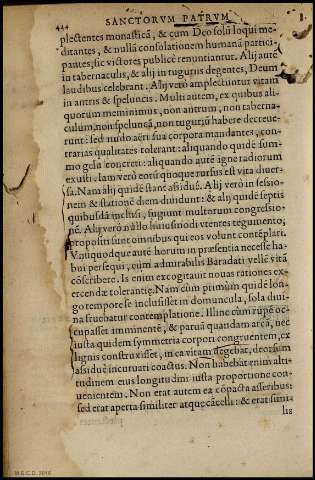 424
SANCTORVM PATRVM
plectentes monasticã, & cum Deo solo loqui me-
ditantes, & nullã consolationem humanã partici-
pantes, sic victores publicè renuntiantur. Alij autẽ
in tabernaculis, & alij in tugurijs degentes, Deum
laudibus celebrant. Alij verò amplectuntur vitam
in antris & speluncis. Multi autem, ex quibus ali-
quorum meminimus, non antrum, non taberna-
culum, non speluncã, non tuguriũ habere decreue-
runt: sed nudo aëri sua corpora mandantes, con-
trarias qualitates tolerant: aliquando quidẽ sum-
mo gelu concreti: aliquando autẽ igne radiorum
exusti. Iam verò eorũ quoque rursus est vita diuer-
sa. Nam alij quidẽ stant assiduè. Alij verò in sessio-
nem & stationẽ diem diuidunt: & alij quidẽ septis
quibusdã inclusi, fugiunt multorum congressio-
nẽ. Alij verò nullo huiusmodi vtentes tegumento,
propositi sunt omnibus qui eos volunt contẽplari.
Vnũquodque autẽ horum in præsentia necesse ha-
bui persequi, cùm admirabilis Baradati vellẽ vitã
cõscribere. Is enim excogitauit nouas rationes ex-
ercendæ tolerantiæ. Nam cùm primùm quidẽ lon-
go tempore se inclusisset in domuncula, sola diui-
na fruebatur contemplatione. Illinc cùm rupẽ oc-
cupasset imminentẽ, & paruã quandam arcã, nec
iusta quidem symmetria corpori congruentem, ex
lignis construxisset, in ea vitam degebat, deorsum
assiduè incuruari coactus. Non habebat enim alti-
tudinem eius longitudini iusta proportione con-
uenientem. Non erat autem ea cõpacta asseribus:
sed erat aperta similiter atque cãcelli: & erat simi-
lis
M.R.C.D. 3046